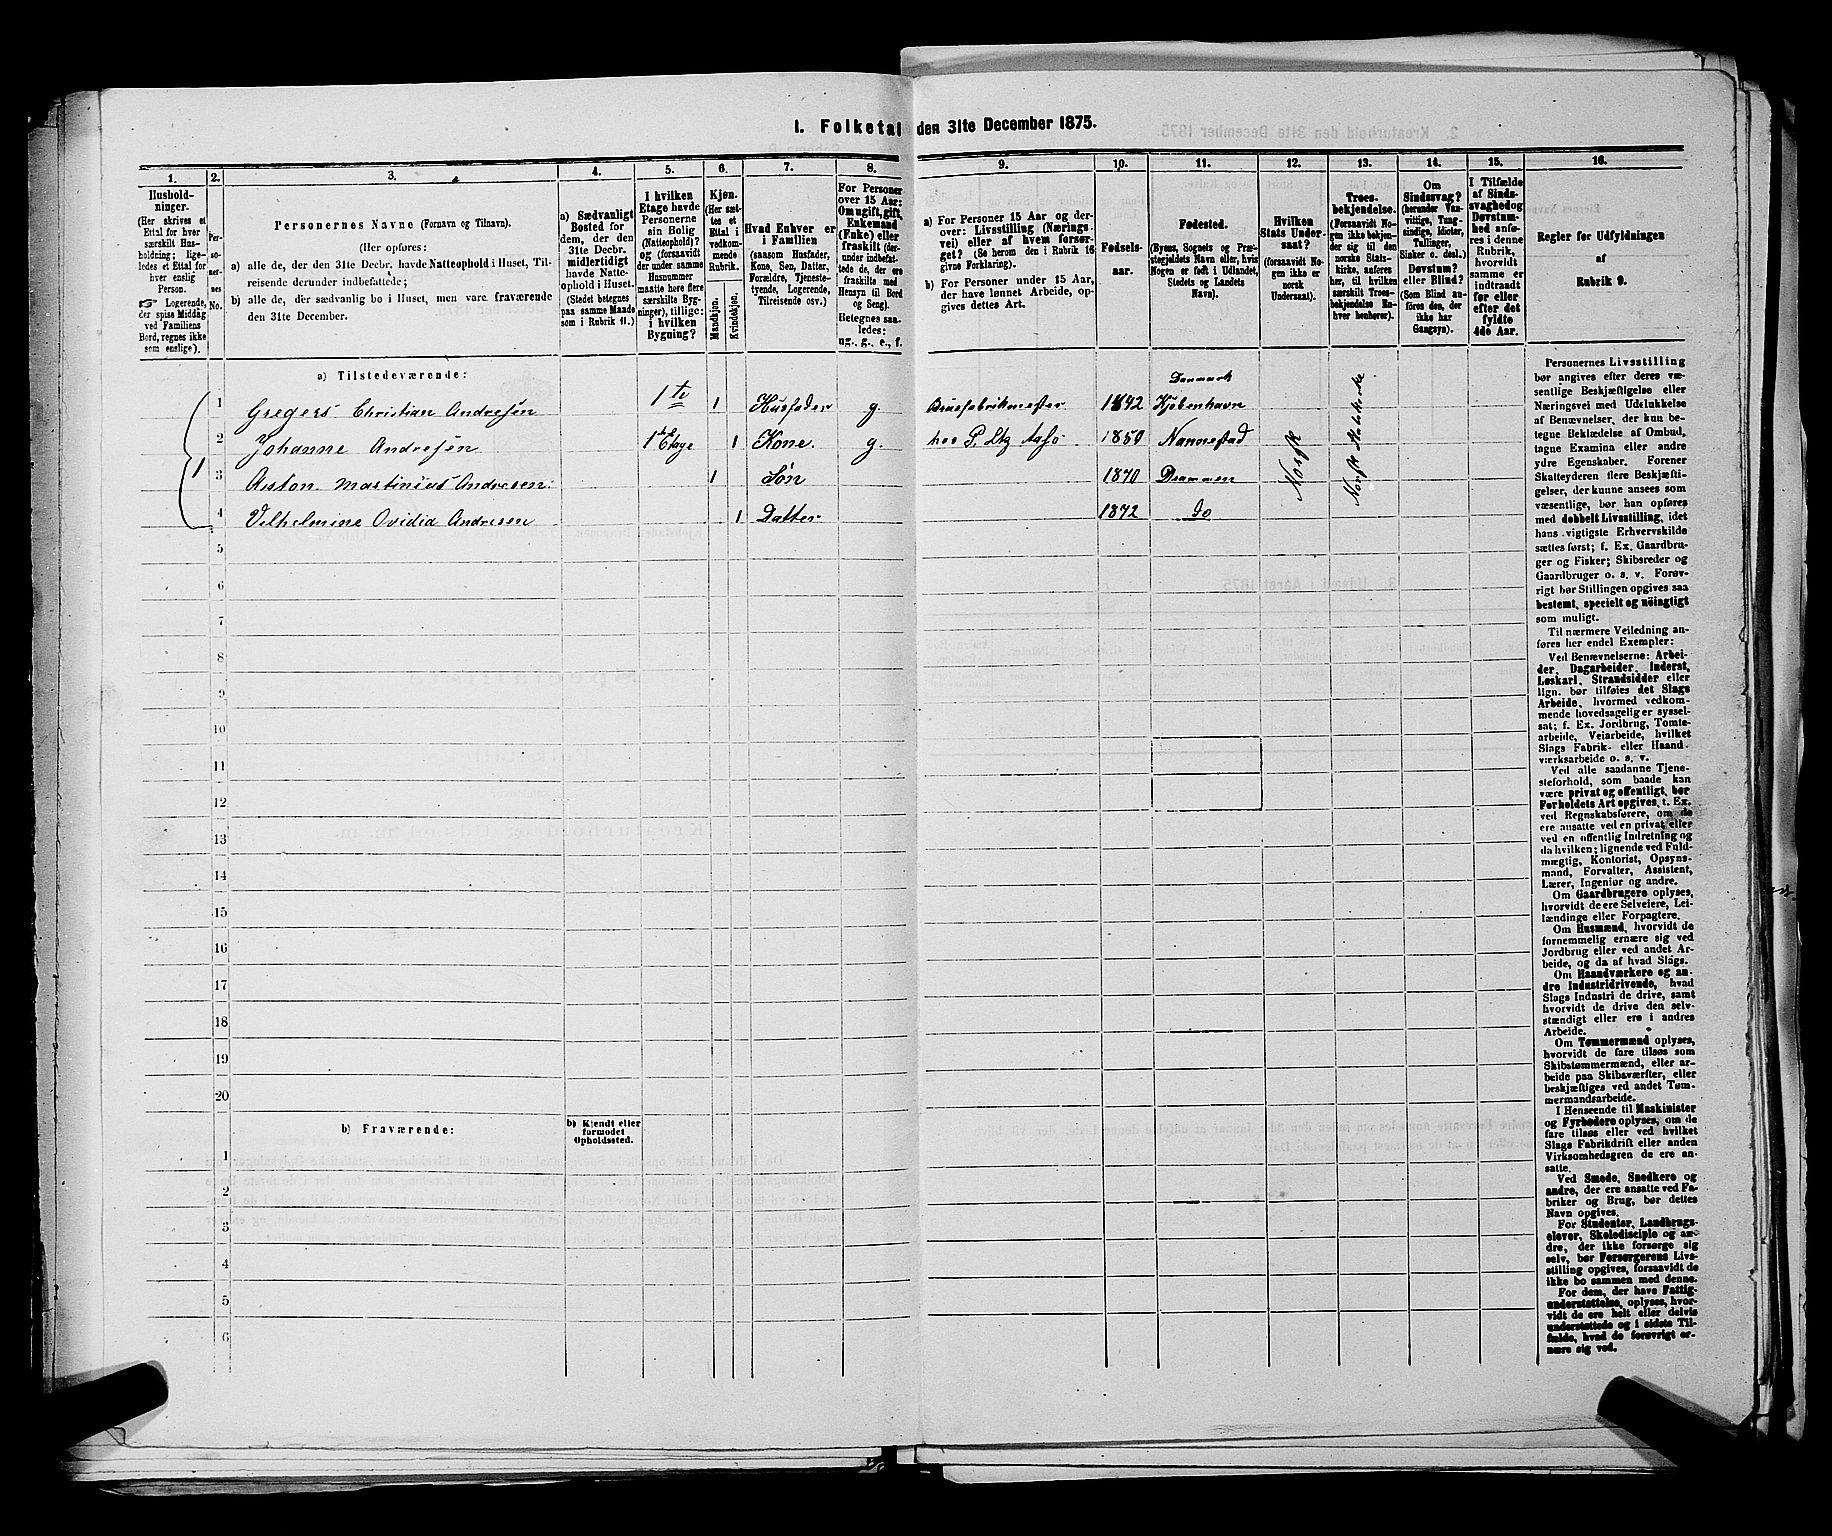 1. Folketal den 31te December 1875.
1. 2. 3. 4. 5. 6. 7. 8. 9. 10. 11. 12. 13. 14. 15. 16.
Hushold-
ninger.
(Her skrives et
Ettal for hver
særskilt Hus-
holdning; lige-
ledes et Ettal for
enslig
Person.
☞ Logerende,
der spise Middag
ved Familiens
Bord, regnes ikke
som enslige).
Per-
so-
ner-
nes
No.
Personernes Navne (Fornavn og Tilnavn).
(Her opføres:
a) alle de, der den 31te Decbr. havde Natteophold i Huset, Til-
reisende derunder indbefattede;
b) alle de, der sædvanlig bo i Huset, men vare fraværende
den 31te December.
a) Sædvanligt
Bosted for
dem, der den
31te Decbr.
midlertidigt
havde Natte-
ophold i Huset.
(Stedet betegnes
paa samme Maade
som i Rubrik 11.)
I hvilken
Etage havde
Personerne
sin Bolig
(Natteophold)?
og (forsaavidt
der under samme
Husnummer
maatte høre flere
særskilte Byg-
ninger), tillige:
i hvilken
Bygning?
Kjøn.
(Her sæt-
tes et
Ettal i
vedkom-
mende
Rubrik.
Mandkjøn.
Kvindekjøn.
Hvad Enhver er
i Familien
(saasom Husfader,
Kone, Søn, Datter,
Forældre, Tjeneste-
tyende, Logerende,
Tilreisende osv.)
For Personer
over 15 Aar:
Om ugift, gift,
Enkemand
(Enke) eller
fraskilt (der-
under indbefat-
tede de, der ere
fraskilte med
Hensyn til Bord
og Seng).
Betegnes saa-
ledes:
ug., g., e., f.
a) For Personer 15 Aar og der-
over: Livsstilling (Nærings-
vei) eller af hvem forsør-
get? (Se herom den i Rubrik 16
givne Forklaring).
b) For Personer under 15 Aar,
der have lønnet Arbeide, op-
gives dettes Art.
Fødsels-
aar.
Fødested.
(Byens, Sognets og Præ-
stegjeldets Navn eller, hvis
Nogen er født i Udlandet,
Stedets og Landets
Navn).
Hvilken
Stats Under-
saat?
(forsaavidt No-
gen ikke er
norsk
Undersaat).
Troes-
bekjendelse.
(Forsaavidt No-
gen ikke bekjen-
der sig til den
norske Stats-
kirke, anføres
her, til hvilken
særskilt Troes-
bekjendelse En-
hver henhører).
Om
Sindssvag?
(herunder Van-
vittige, Tung-
sindige, Idioter,
Tullinger,
Sinker o. desl.)
Døvstum?
eller Blind?
(Som Blind an-
føres den, der
ikke har
Gangsyn).
I Tilfælde
af Sinds-
svaghed og
Døvstum-
hed anfø-
res i denne
Rubrik,
hvorvidt
samme er
indtraadt
før eller
efter det
fyldte
4de Aar.
Regler for Udfyldningen
af
Rubrik 9.
a) Tilstedeværende:
1 Gregers Christian Andresen 1ste 1 Husfader g. 1842 Danmark Kjøbenhavn
2 Johanne Andresen 1 Etage 1 Kone. g. 1850 Nannestad
3 Anton Martinius Andresen 1 Søn 1870 Drammen
4 Vilhelmine Ovidia Andresen 1 Datter 1872 do
1
Norsk
Norsk Statskirke
5
6
7
8
9
10
11
12
13
14
15
16
17
18
19
20
b) Fraværende:
b) Kjendt eller
formodet
Opholdssted.
1
2
3
4
5
6
Personernes Livsstilling
bør angives efter deres væ-
sentlige Beskjæftigelse eller
Næringsvei med Udelukkelse
af Benævnelser, der kun be-
tegne Beklædelse af Ombud,
tagne Examina eller andre
ydre Egenskaber. Forener
Skatteyderen flere Beskjæfti-
gelser, der kunne ansees som
væsentlige, bør han opføres
med dobbelt Livsstilling, idet
hans vigtigste Erhvervskilde
sættes først; f. Ex. Gaardbru-
ger og Fisker; Skibsreder og
Gaardbruger o. s. v. Forøv-
rigt bør Stillingen opgives saa
bestemt, specielt og nöiagtigt
som muligt.
Til nærmere Veiledning an-
føres her endel Exempler:
Ved Benævnelserne: Arbei-
der, Dagarbeider, Inderst,
Løskarl, Strandsidder eller
lign. bør tilføies det Slags
Arbeide, hvormed vedkom-
mende hovedsagelig er syssel-
sat; f. Ex. Jordbrug, Tomte-
arbeide, Veiarbeide, hvilket
Slags Fabrik- eller Haand-
værksarbeide o. s. v.
Ved alle saadanne Tjene-
steforhold, som baade kan
være privat og offentligt, bør
Forholdets Art opgives, t. Ex.
ved Regnskabsførere, om de
ere ansatte ved en privat eller
ved en offentlig Indretning og
da hvilken; lignende ved Fuld-
mægtig, Kontorist, Opsyns-
mand, Forvalter, Assistent,
Lærer, Ingeniør og andre.
Om Gaardbrugere oplyses,
hvorvidt de ere Selveiere, Lei-
lændinge eller Forpagtere.
Om Husmænd, hvorvidt de
fornemmelig ernære sig ved
Jordbrug eller ved andet Ar-
beide, og da af hvad Slags.
Om Haandværkere og an-
dre Industridrivende, hvad
Slags Industri de drive, samt
hvorvidt de drive den selv-
stændigt eller ere i andres
Arbeide.
Om Tømmermænd oplyses,
hvorvidt de fare tilsøs som
Skibstømmermænd, eller ar-
beide paa Skibsværfter, eller
beskjæftiges ved andet Tøm-
mermandsarbeide.
I Henseende til Maskinister
og Fyrbødere oplyses, om de
fare tilsøs eller ved hvilket
Slags Fabrikdrift eller anden
Virksomhedsgren de ere an-
satte.
Ved Smede, Snedkere og
andre, der ere ansatte ved Fa-
briker og Brug, bør dettes
Navn opgives.
For Studenter, Landbrugs-
elever, Skoledisciple og an-
dre, der ikke forsørge sig
selv, bør Forsørgerens Livs-
stilling opgives, forsaavidt de
ikke bo sammen med denne.
For dem, der have Fattig-
understøttelse, oplyses, hvor-
vidt de ere helt eller delvis
understøttede og i sidste Til-
fælde, hvad de forøvrigt er-
nære sig ved.